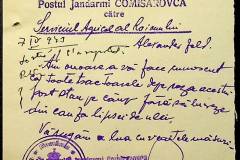 Postul Jandarmi COMISAROVCA
către
Serviciul Agricol al Raionului
7/IV 943 Alexander Feld.
Am onoarea vă face cunoscut
că toate tractoarele depe pe acest
post stau pe câmp fără să lucreze
din cauza lipsei de ulei.
Vă rugăm a lua cuvenitele măsuri.